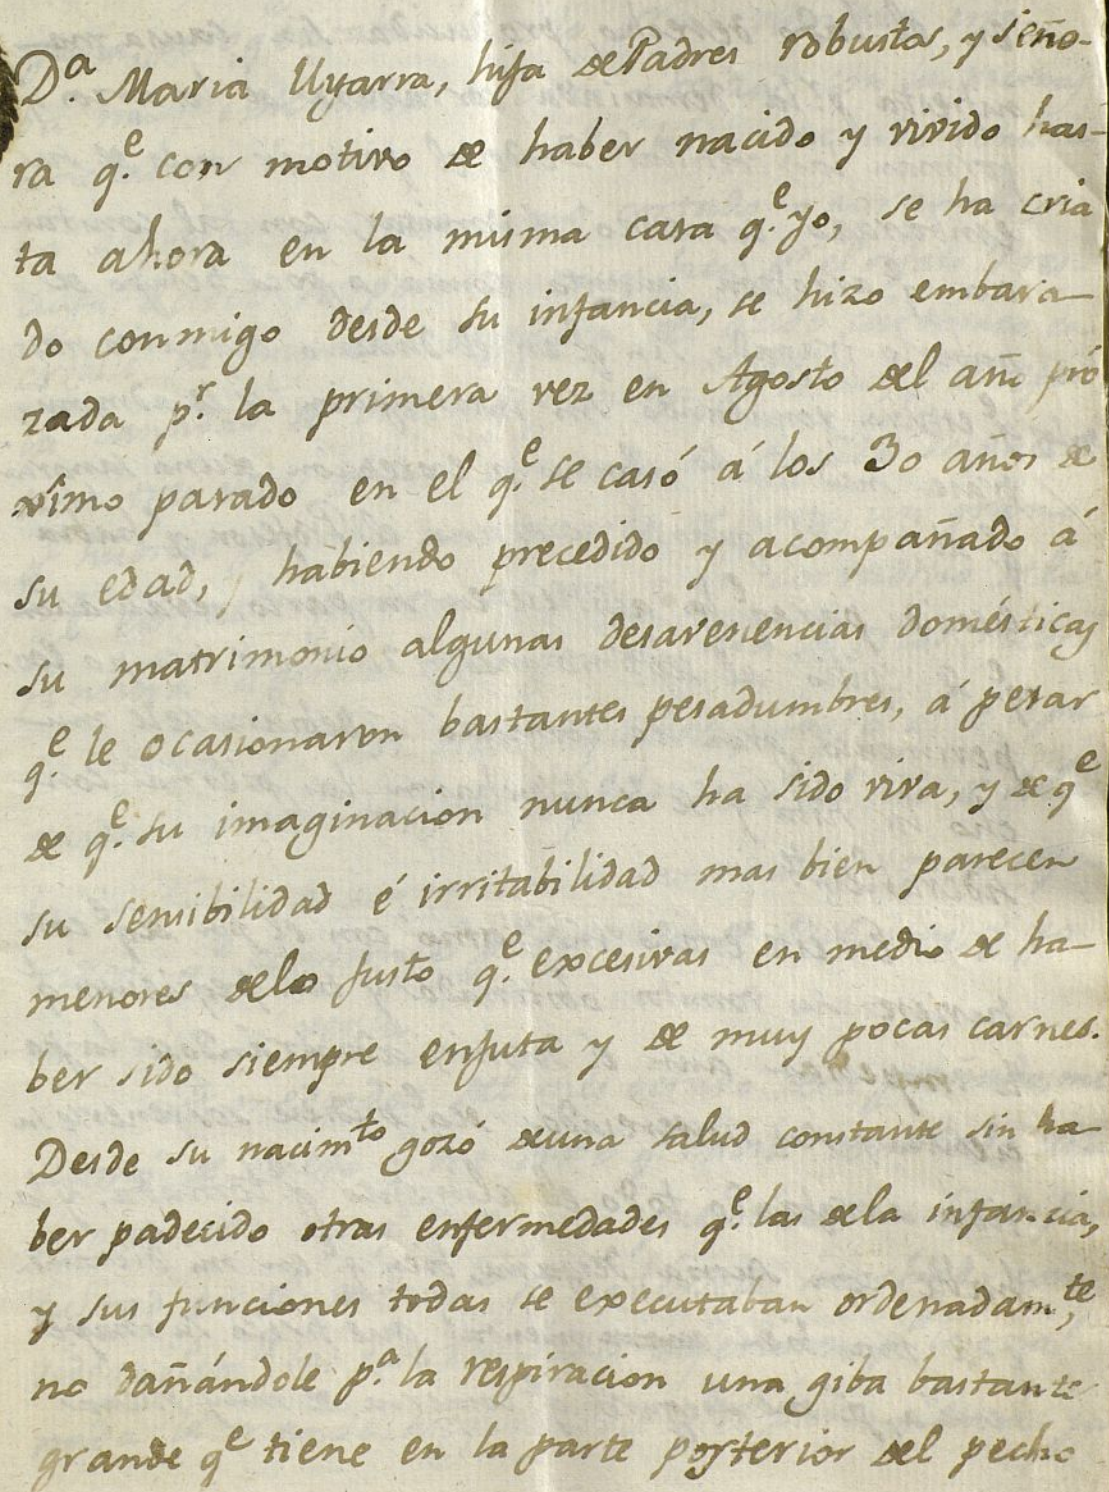 Dª. Maria Uyarra, hija de Padres robustos, y seño-
ra q.e con motivo de haber nacido y vivido has-
ta ahora en la misma casa q.e yo, se ha cria
do conmigo desde su infancia, se hizo embara-
zada p.r la primera vez en Agosto del año pró
ximo pasado en el q.e se casó á los 30 años de
su edad, habiendo precedido y acompañado á
su matrimonio algunas desavenencias domésticas
q.e le ocasionaron bastantes pesadumbres, á pesar
de q.e su imaginacion nunca ha sido viva, y de qe
su sensibilidad é irritabilidad mas bien parecen
menores delo justo q.e excesivas en medio de ha-
ber sido siempre enjuta y de muy pocas carnes.
Desde su nacimto gozó deuna salud constante sin ha-
ber padecido otras enfermedades q.e las dela infancia,
y sus funciones todas se executaban ordenadamte,
no dañándole p.a la respiracion una giba bastante
grande qe tiene en la parte posterior del pecho